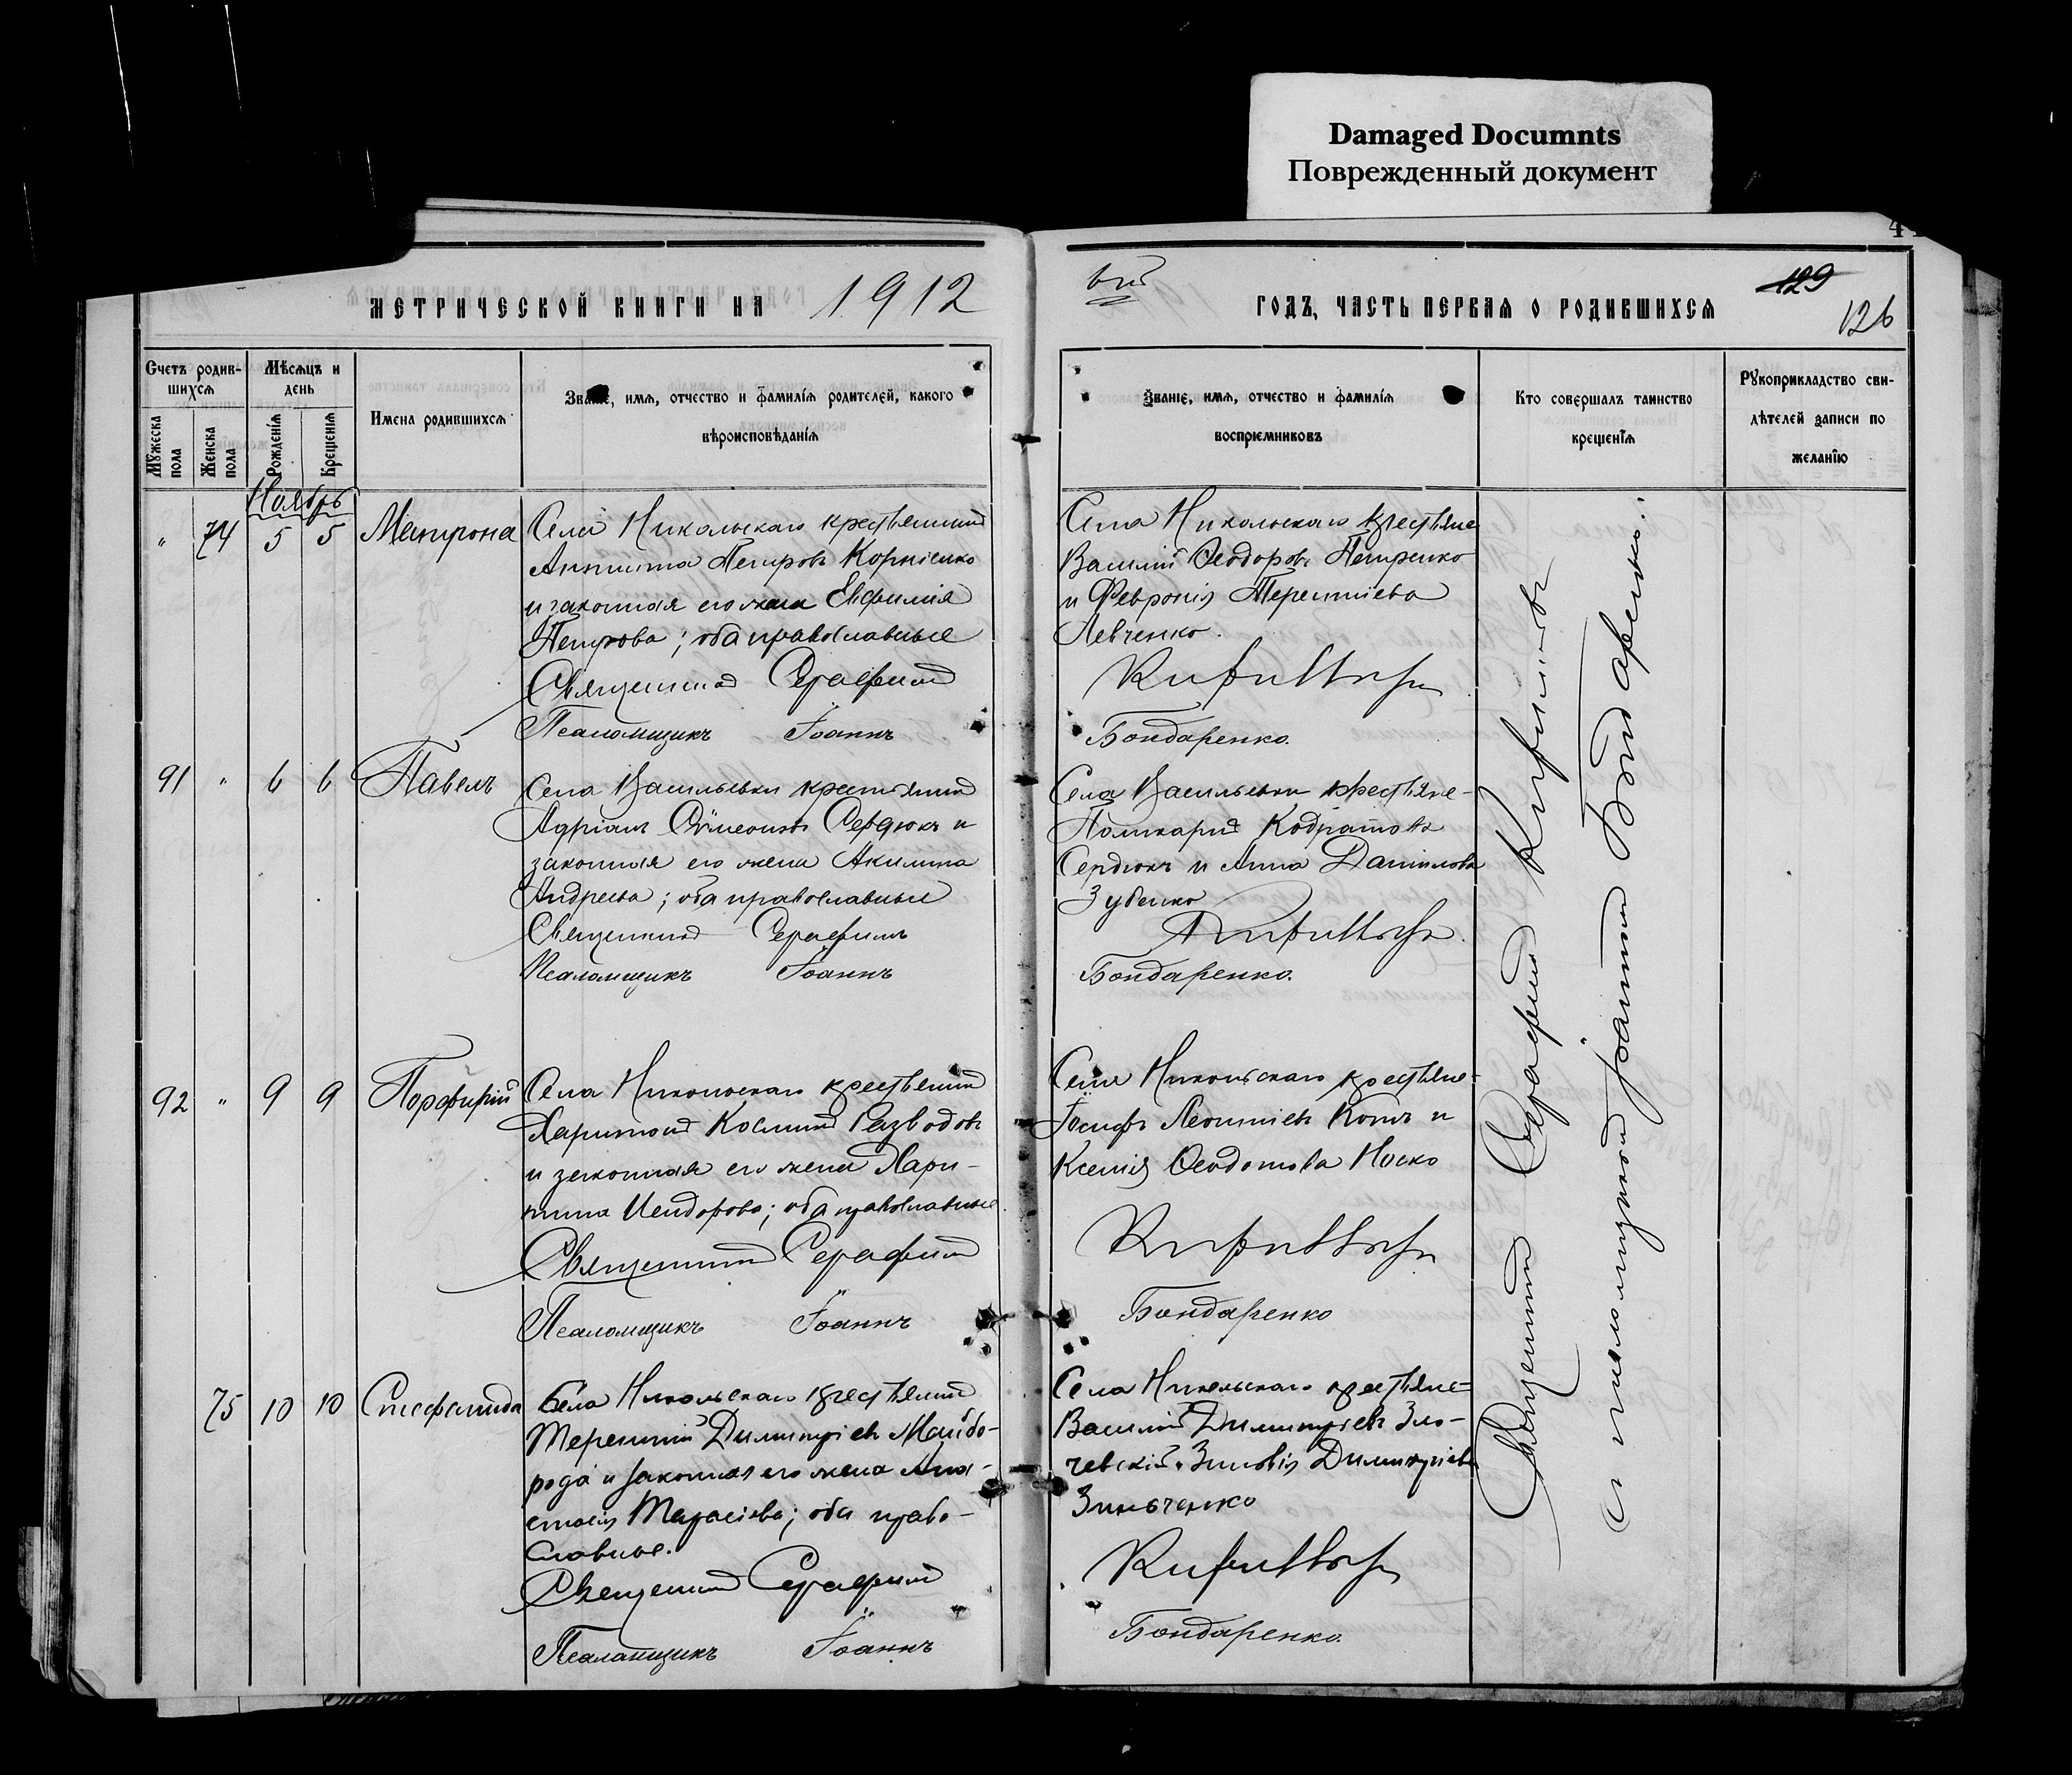 Damaged Documnts
Поврежденный документ
МЕТРИЧЕСКОЙ КНИГИ НА 1912
вый ГОДЪ, ЧАСТЬ ПЕРВАЯ О РОДИВШИХСЯ
129
126
Счетъ родив-
шихся
Мѣсяцъ и
день
Мужеска
пола
Женска
пола
Рожденія
Крещенія
Имена родившихся
Званіе, имя, отчество и фамилія родителей, какого
вѣроисповѣданія
Званіе, имя, отчество и фамилія
воспріемниковъ
Кто совершалъ таинство
крещенія
Рукоприкладство сви-
дѣтелей записи по
желанію
Ноябрь
" 74 5 5 Матрона
Села Никольскаго крестьянинъ
Петровъ Корніенко
и законная его жена Евфимія
Петрова; оба православные
Священникъ Серафимъ
Псаломщикъ Іоаннъ
Села Никольскаго крестьяне
Василій Ѳеодоровъ Петренко
и Февронія Терентіева
Левченко.
Бондаренко.
91 " 6 6 Павелъ
Села Васильевки крестьянинъ
Адріанъ Сѵмеоновъ Сердюкъ и
законная его жена Акилина
Андреева; оба православные
Священникъ Серафимъ
Псаломщикъ Іоаннъ
Села Васильевки крестьяне-
Поликарпъ Кодратовъ
Сердюкъ и Анна Даніилова
Зубенко
Бондаренко.
92 " 9 9 Порфирій
Села Никольскаго крестьянинъ
Харитонъ Косминъ Разводовъ
и законная его жена Хари-
тина Исидорова; оба православные.
Священникъ Серафимъ
Псаломщикъ Іоаннъ
Села Никольскаго крестьяне-
Іосифъ Леонтіевъ Котъ и
Ксенія Ѳеодотова Носко
Бондаренко
75 10 10 Стефанида
Села Никольскаго крестьянинъ
Терентій Димитріевъ Майбо-
рода и законная его жена Ана-
стасія Тарасіева; оба право-
славные.
Священникъ Серафимъ
Псаломщикъ Іоаннъ
Села Никольскаго крестьяне-
Василій Димитріевъ Зло-
чевскій и Зиновія Димитріева
Зинченко
Бондаренко.
Священникъ Серафимъ
съ псаломщикомъ Іоанномъ Бондаренко.